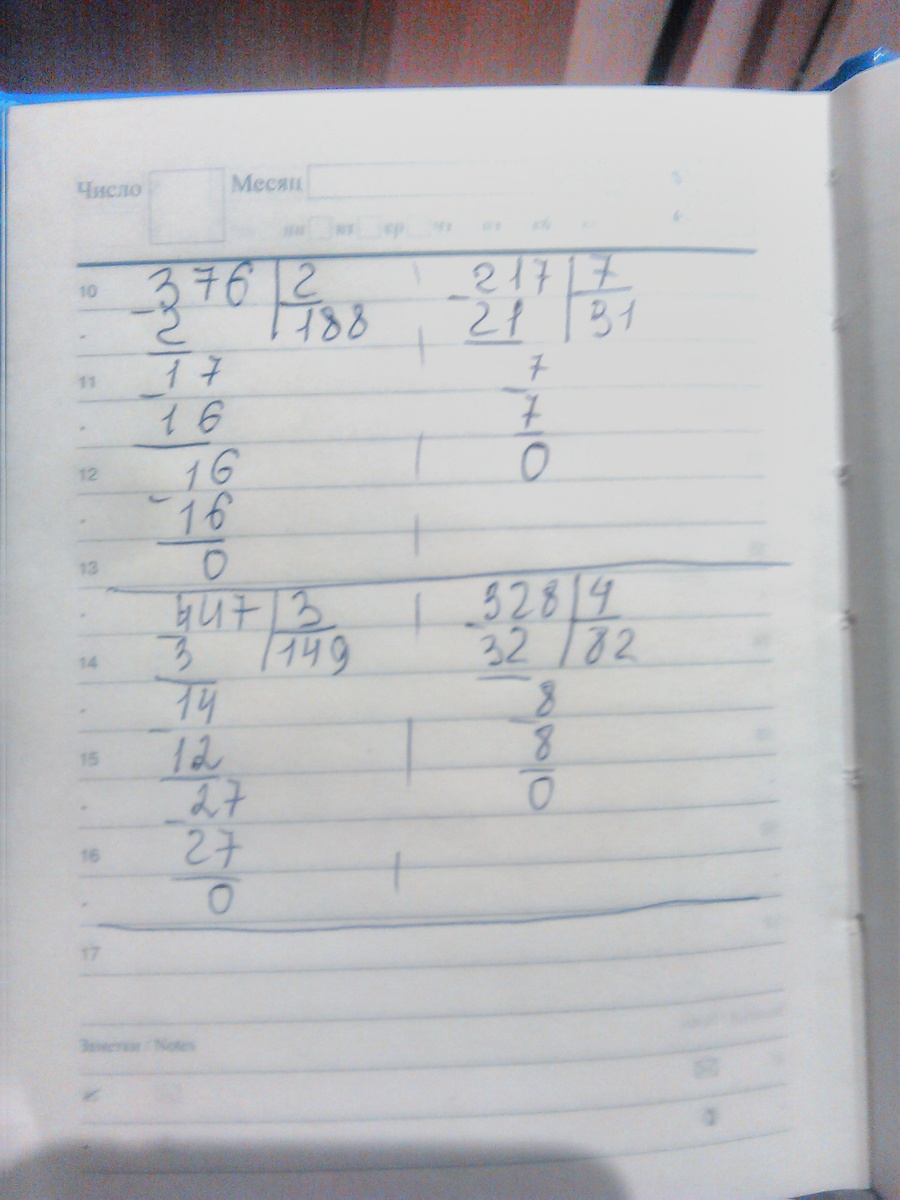 Число Месяц
пн вт ср чт пт сб вс
10 376 2 217 7
- 2 188 - 21 31
11 17 7
- 16 7
12 16 0
- 16
13 0
447 3 328 4
- 3 149 - 32 82
14
14 8
- 12 8
15 27 0
- 27
16 0
17
Заметки / Notes